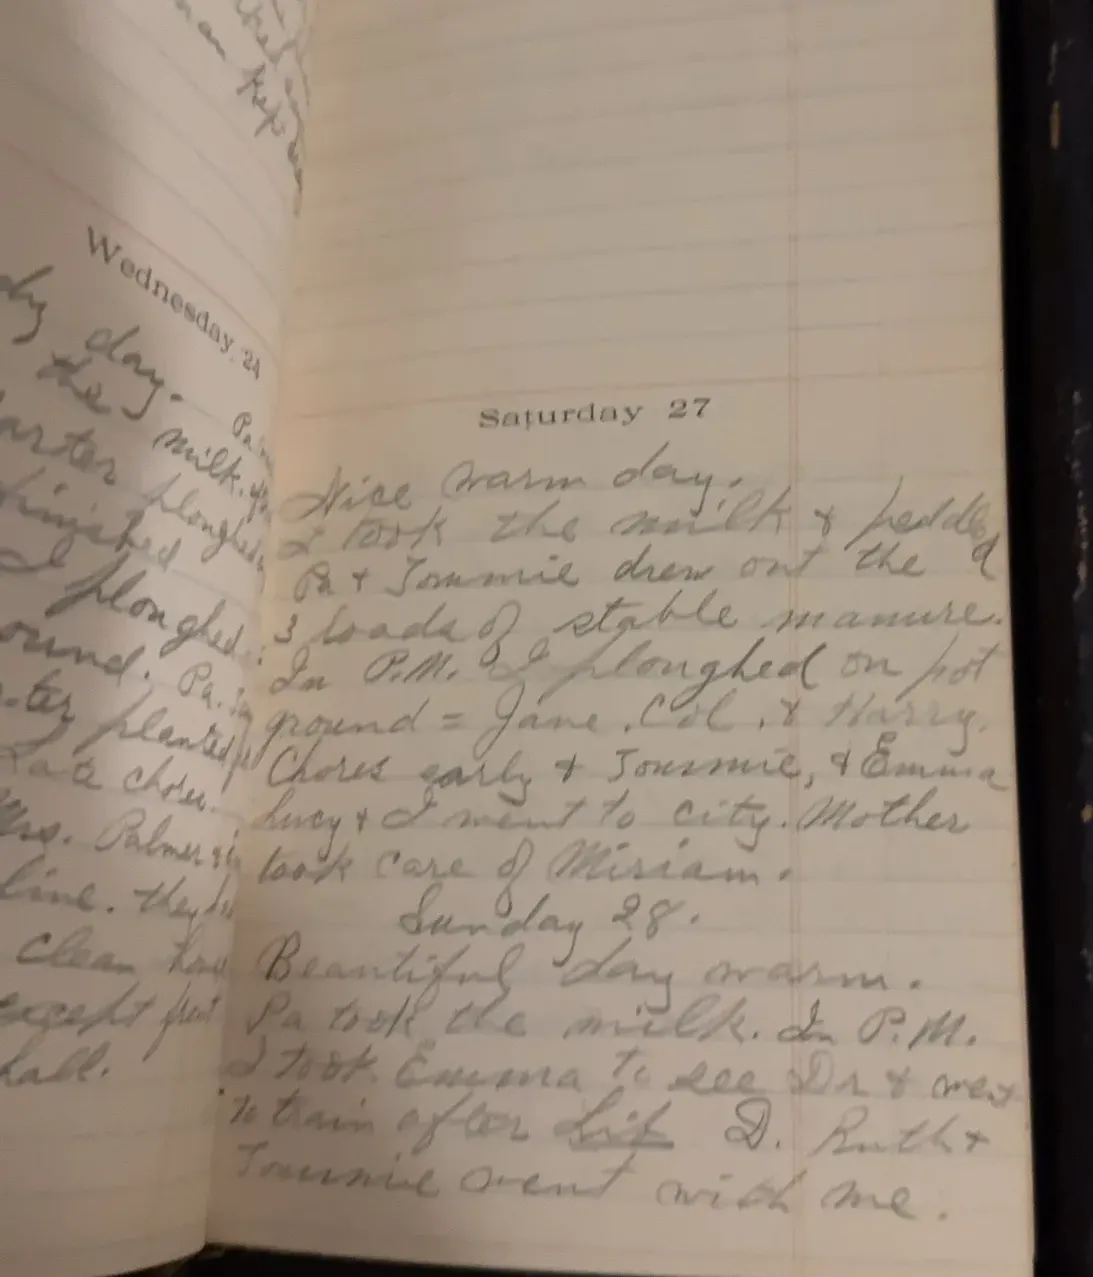 Wednesday, 24
day.
the milk.
ploughed
finished
I ploughed.
ound. Pa.
planted
Late chores.
Mrs. Palmer &
line. they
clean
except
hall.
Saturday 27
Nice warm day.
I took the milk & peddled
Pa & Tommie drew out the
3 loads of stable manure.
In P.M. I ploughed on pot
ground = Jane, Col, & Harry.
Chores early & Tommie, & Emma
Lucy & I went to city. Mother
took care of Miriam.
Sunday 28.
Beautiful day warm.
Pa took the milk. In P.M.
I took Emma to see Dr & went
to train after D. Ruth &
Tommie went with me.